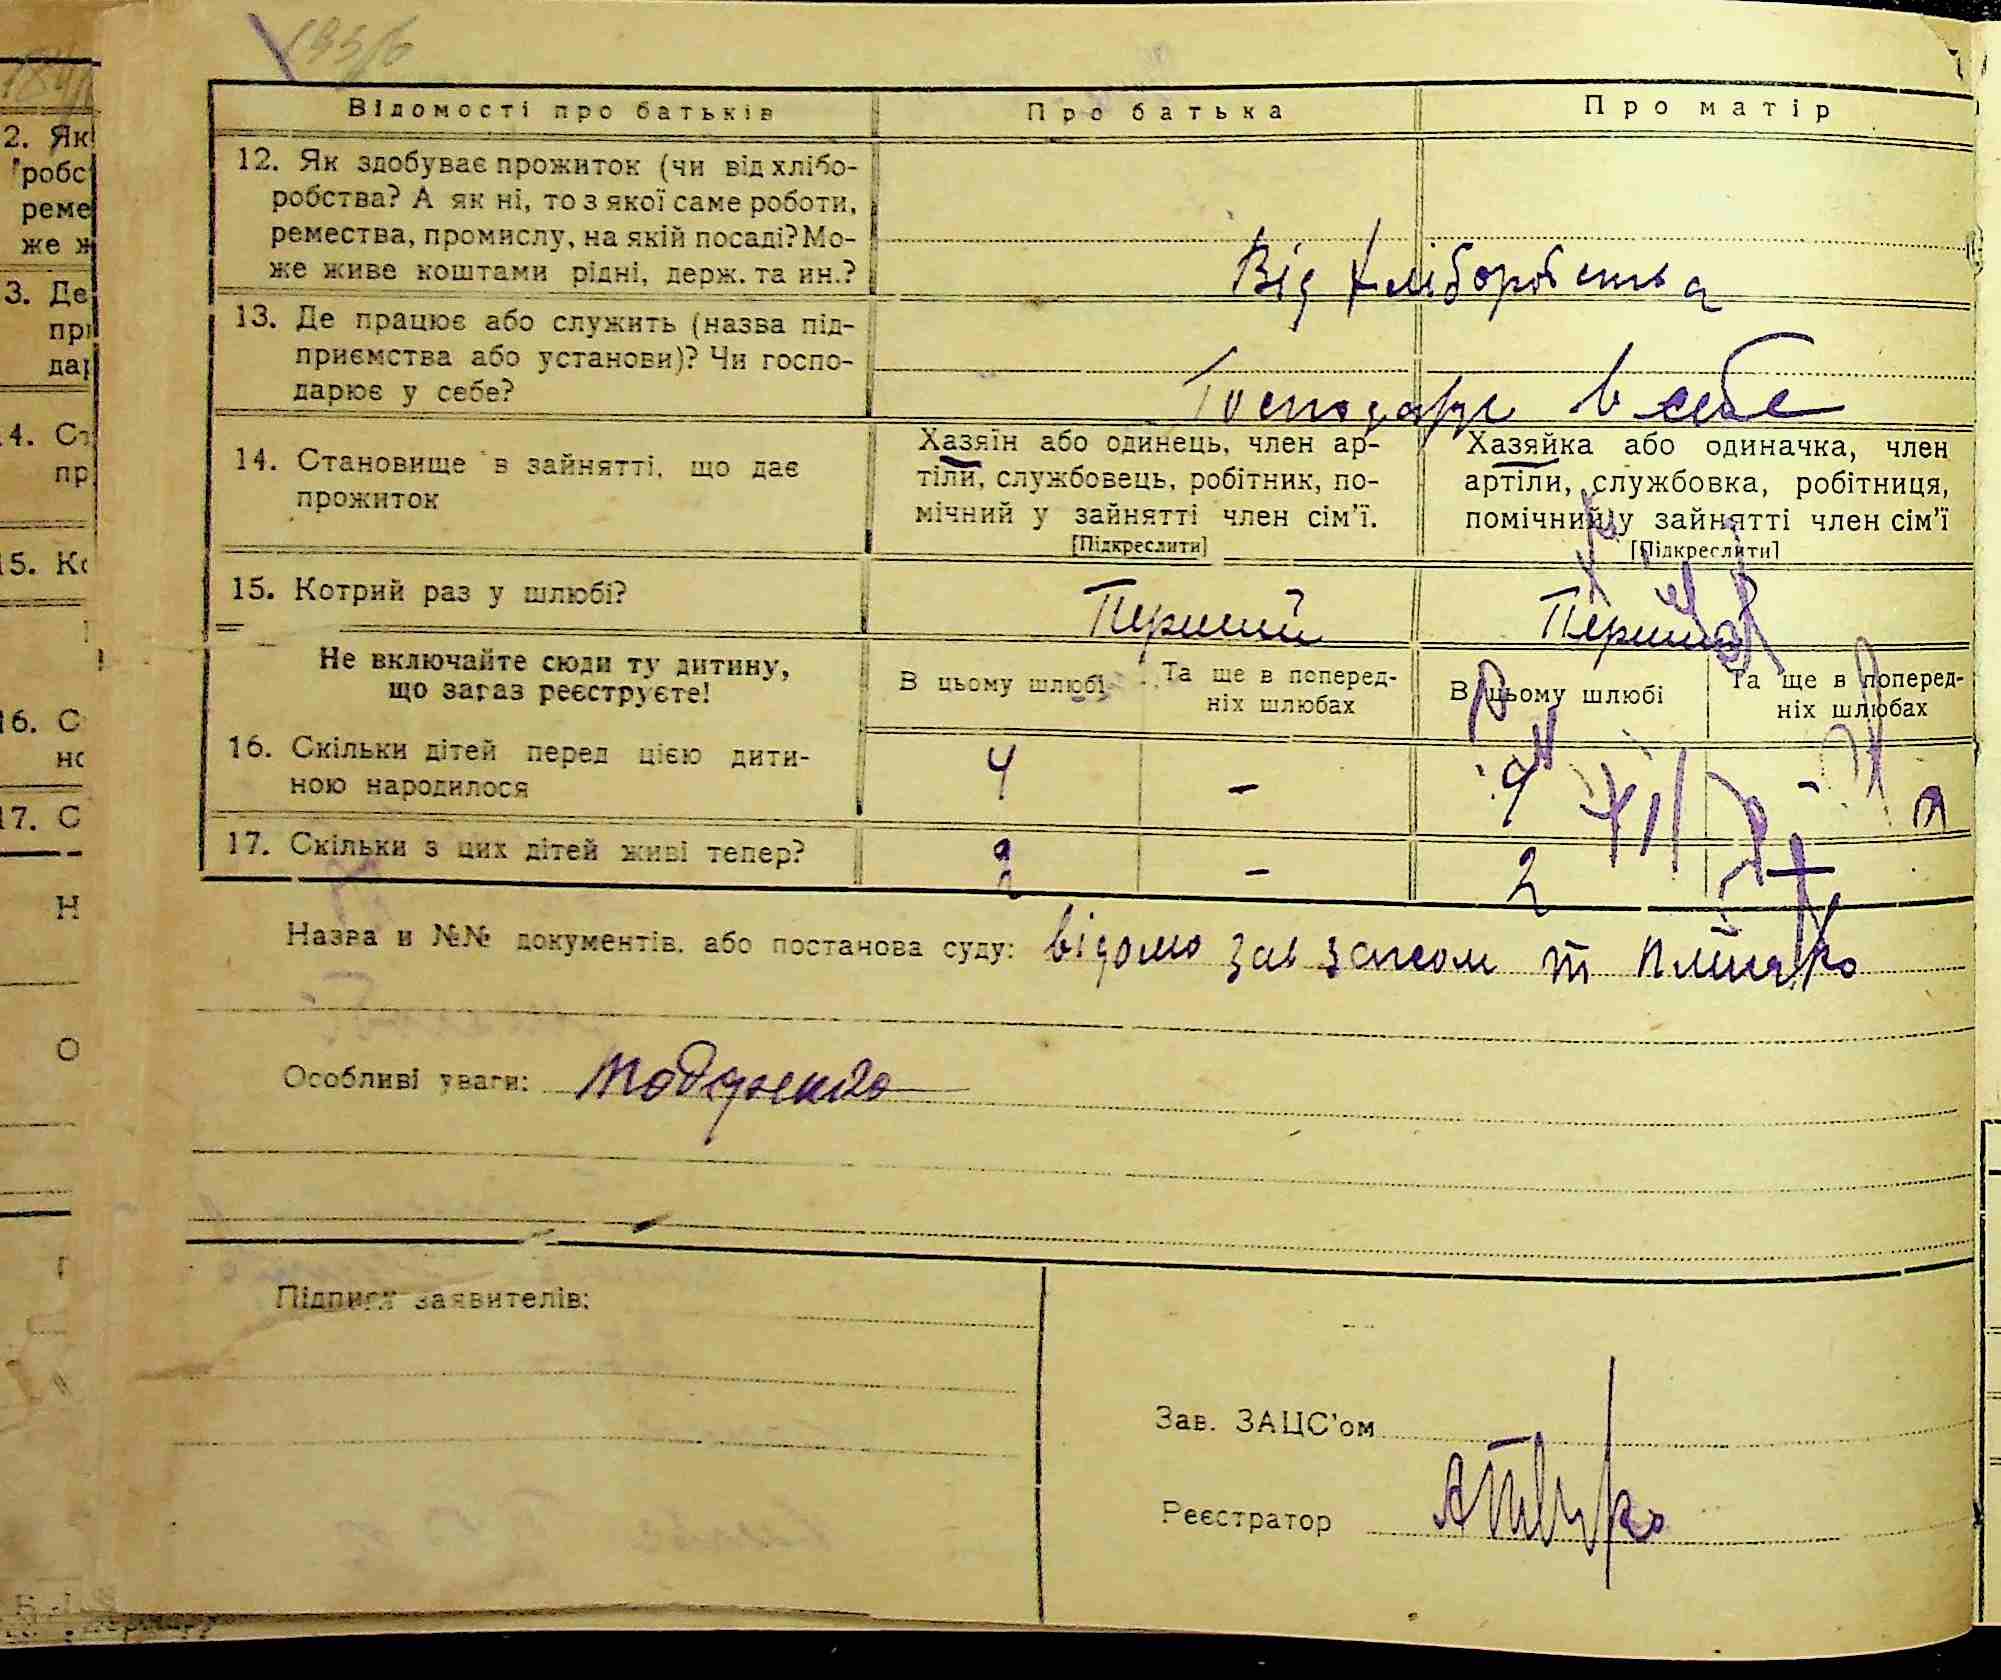 Відомості про батьків
Про батька
Про матір
12. Як здобуває прожиток (чи від хлібо-
робства? А як ні, то з якої саме роботи,
ремества, промислу, на якій посаді? Мо-
же живе коштами рідні, держ. та ин.?
Від хліборобства
13. Де працює або служить (назва під-
приємства або установи)? Чи госпо-
дарює у себе?
Господарує в себе
14. Становище в зайнятті, що дає
прожиток
Хазяїн або одинець, член ар-
тіли, службовець, робітник, по-
мічний у зайнятті член сім'ї.
[Підкреслити]
Хазяйка або одиначка, член
артіли, службовка, робітниця,
помічний у зайнятті член сім'ї
[Підкреслити]
15. Котрий раз у шлюбі?
Перший
Перший
Не включайте сюди ту дитину,
що зараз реєструєте!
В цьому шлюбі
Та ще в поперед-
ніх шлюбах
В цьому шлюбі
Та ще в поперед-
ніх шлюбах
16. Скільки дітей перед цією дити-
ною народилося
4 - 4 -
17. Скільки з цих дітей живі тепер?
2 - 2
Назва и №№ документів, або постанова суду: відомо зав загсом т
Особливі уваги:
Підписи заявителів:
Зав. ЗАЦС'ом
Реєстратор
2. Як
робс
реме
же ж
3. Де
при
дар
4. Ст
пр
15. Ко
16. С
но
17. С
Н
О